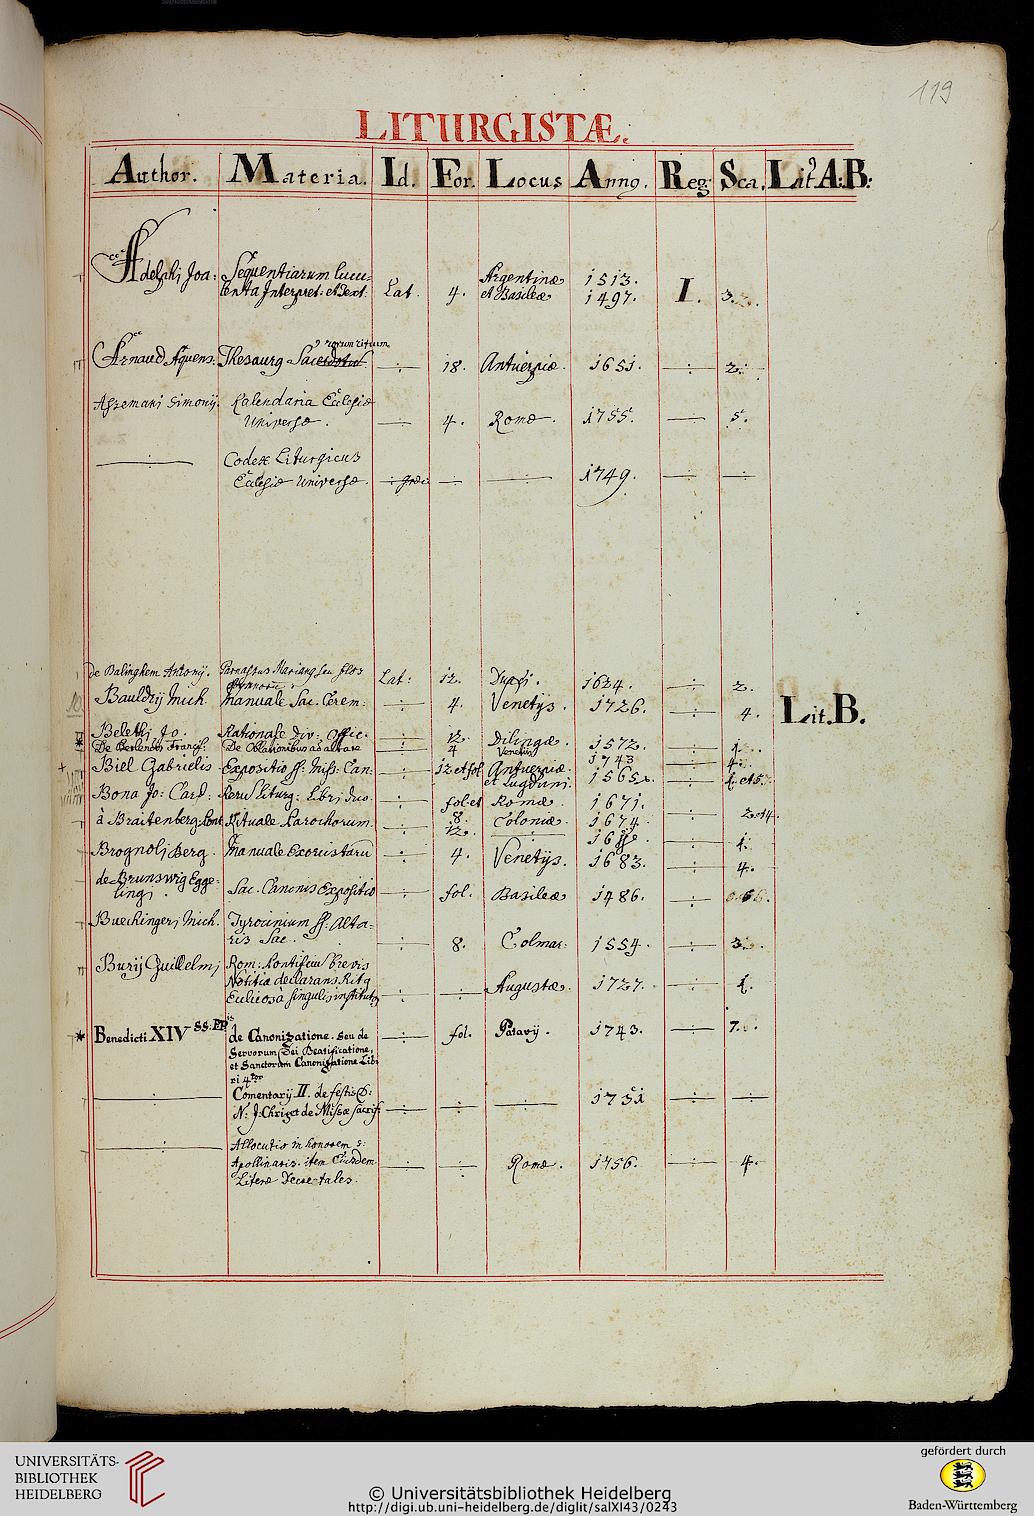 119
LITURGISTÆ.
Author. Materia. Id. For. Locus Annꝰ. Reg: Sca. Litꝰ A: B:
Adelphi Joa: Sequentiarum lucu-
lenta Interpret. et Text: Lat. 4. Argentinæ 1513.
et Basileæ 1497. I. 3.
Arnaud Aquens: Thesaurꝰ Sac rorum rituum — 18. Antuerpiæ. 1651. — 2.
Assemani Simonij. Kalendaria Ecclesiæ
Universæ. — 4. Romæ. 1755. — 5.
— Codex Liturgicus
Ecclesiæ Universæ. — — — 1749. — —
de Balinghem Antonij. Parnassus Marianꝰ seu flos
Lat: 12. Duaci. 1624. — 2.
Bauldry Mich. Manuale Sac. Cerem: — 4. Venetijs. 1726. — 4. Lit. B.
Belethi Jo. Rationale Div: Offic. — 12. Dilingæ. 1572. — 1.
De Berlendis Francis: De Oblationibus ad altare — 4 Venetijs 1743 — 4.
Biel Gabrielis Expositio ss: Miss: Can: — 12 et fol Antuerpiæ. 1565.
et Lugduni.
Bona Jo: Card: Reru Liturg: Libri duo. — fol et 8. Romæ. 1671.
Coloniæ. 1674. — 2.
à Braitenberg Rituale Parochorum. — 12. —
Brognoli Berg. Manuale Exorcistaru — 4. Venetijs. 1683. — 4.
de Brunswig Egge-
lingi. Sac. Canonis Expositio — fol. Basileæ 1486. —
Buechingeri Mich. Tyrocinium ss: Alta-
ris Sac. — 8. Colmar. 1554. — 3.
Burij Guillelmi Rom: Pontificu brevis
Notitia declarans Ritꝰ
— — Augustæ. 1727. —
Benedicti XIV SS: PP: de Canonizatione. Seu de — fol. Patavij. 1743. — 7.
Servorum Dei Beatificatione,
et Sanctorum Canonizatione Lib-
ri 4tor
— Comentarij II. de festis D:
N: J: Christ de Missæ sacrif: — — — 1751 — —
— Allocutio in honorem S:
Apollinaris. item Eiusdem — — Romæ. 1756. — 4.
Literæ Decre-tales.
UNIVERSITÄTS-
BIBLIOTHEK
HEIDELBERG
© Universitätsbibliothek Heidelberg
http://digi.ub.uni-heidelberg.de/diglit/salXI43/0243
gefördert durch
Baden-Württemberg